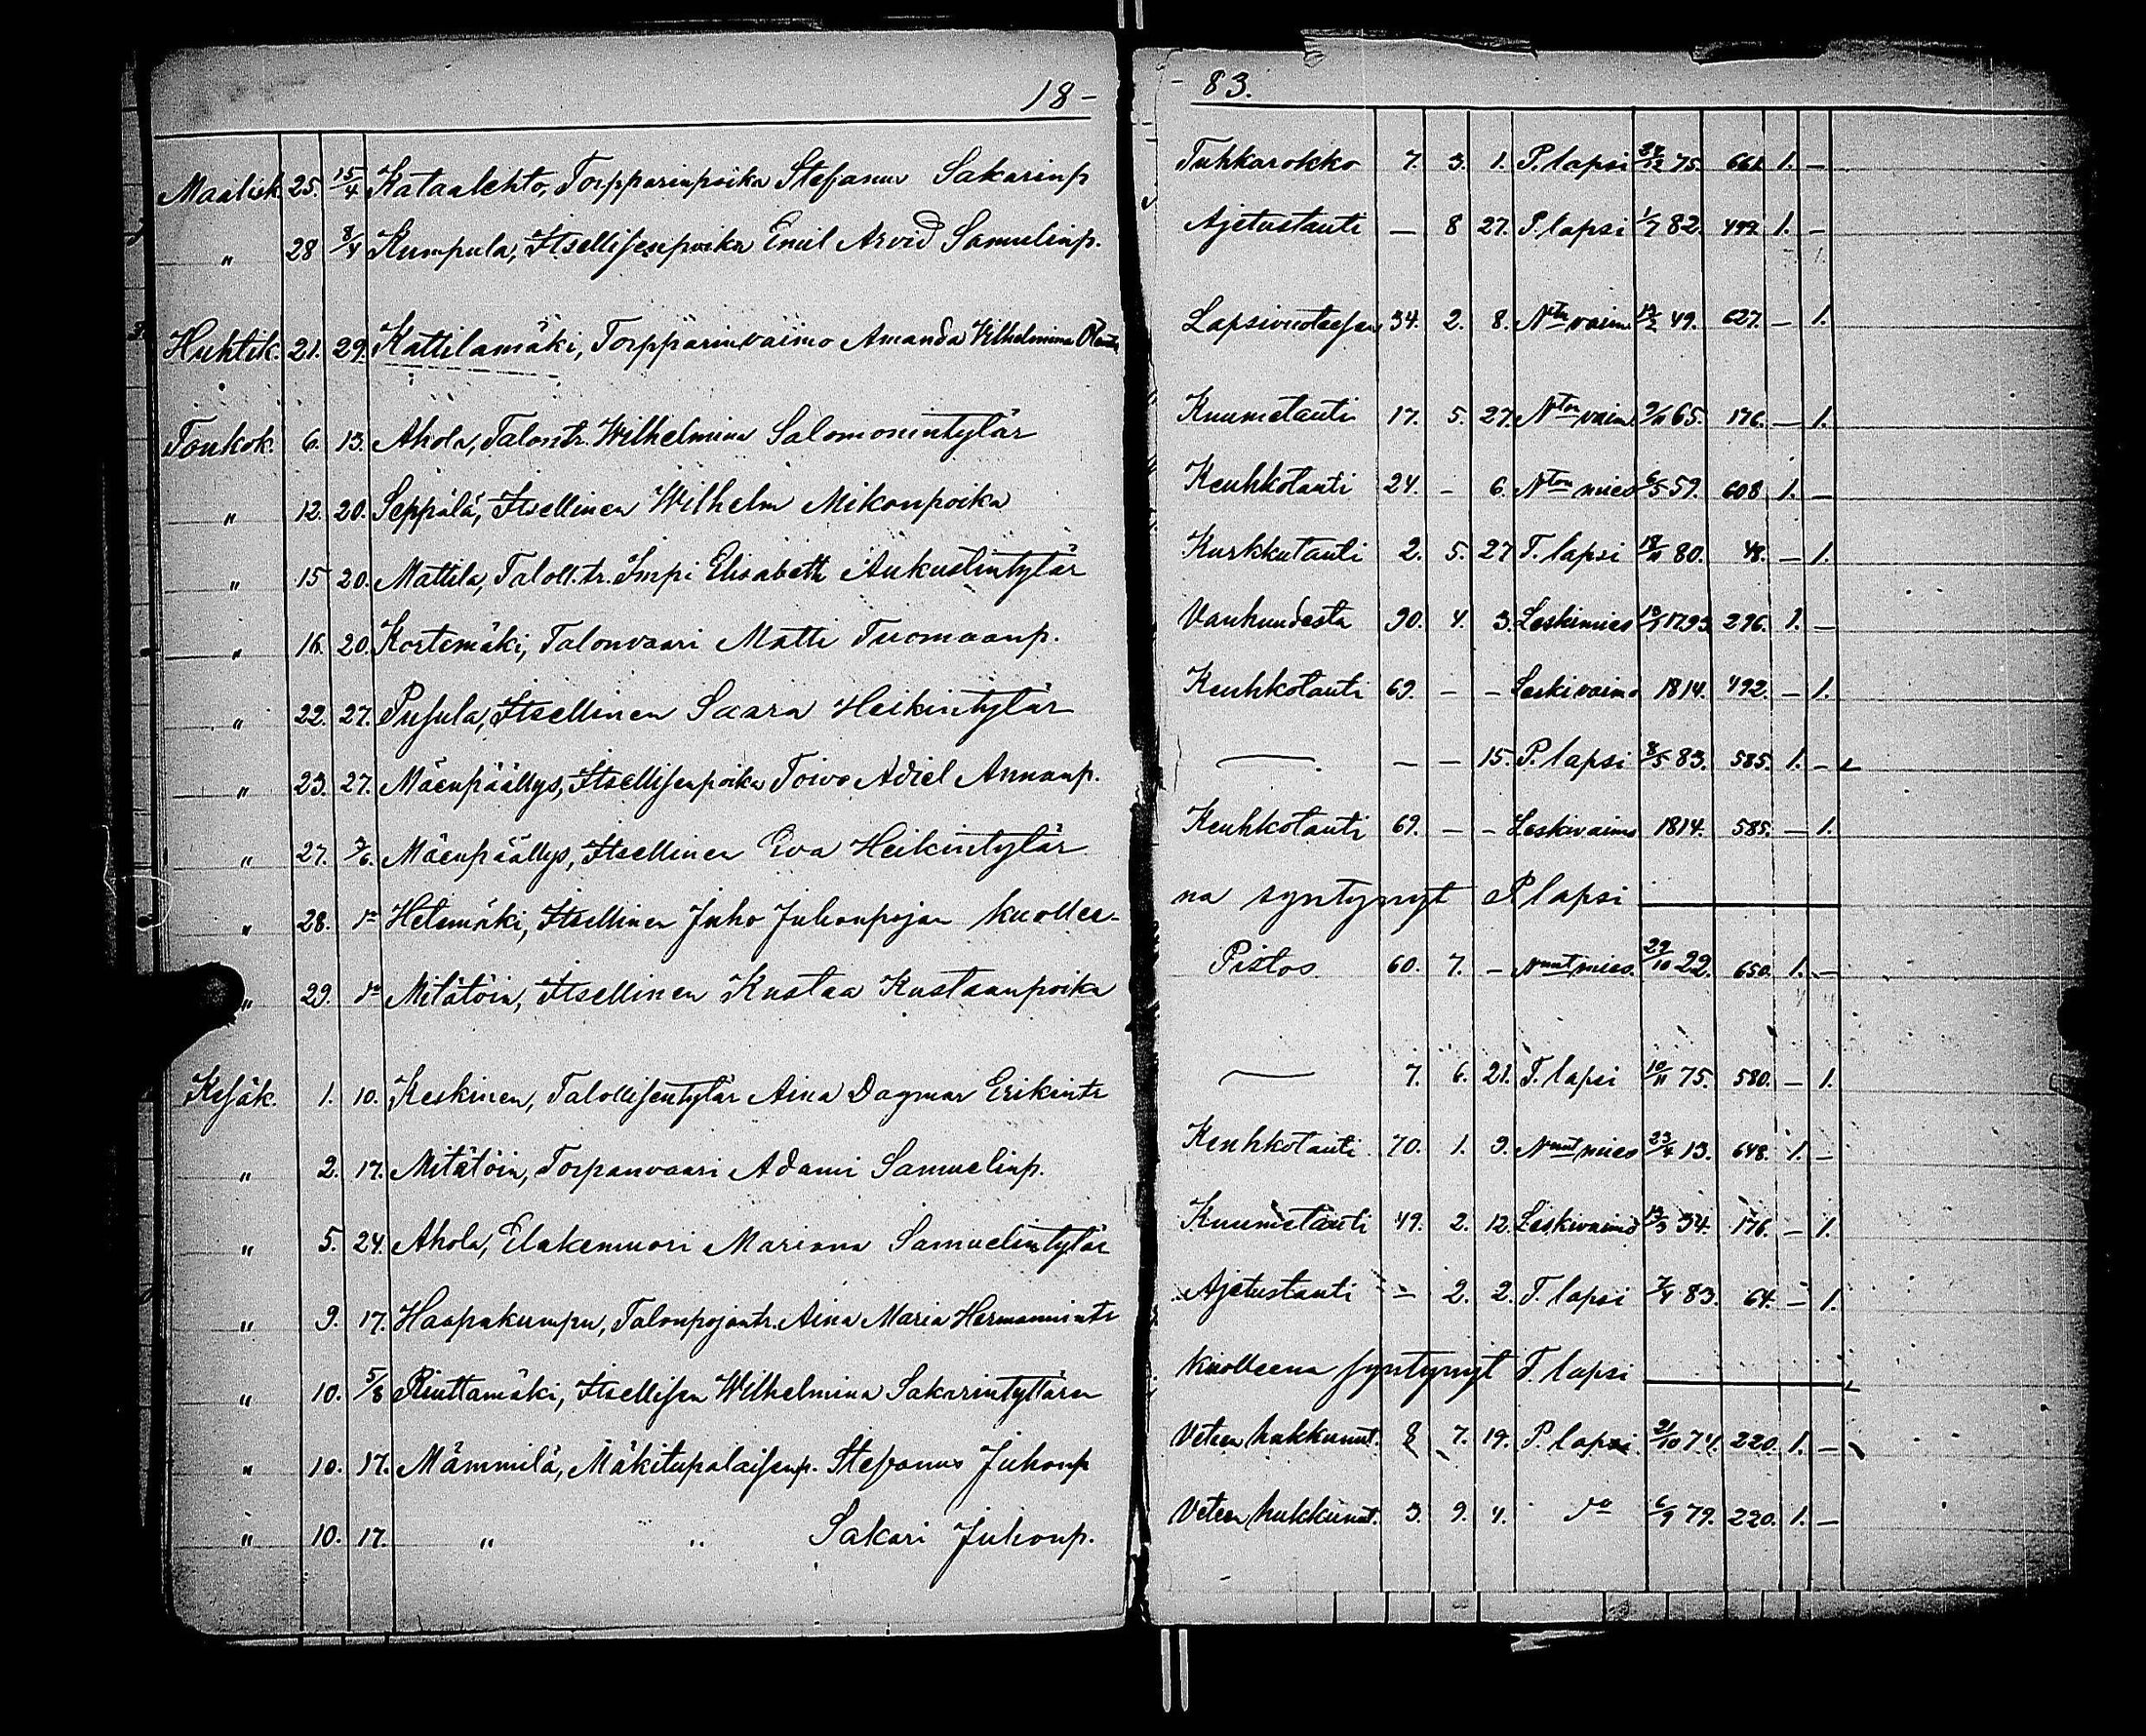 18 - - 83.
Maalisk. 25. 15/4 Kataalehto, Torpparinpoika Stefanus Sakarinp Tuhkarokko 7. 3. 1. P. lapsi 24/12 75. 661. 1. –
" 28 8/4 Kumpula, Itsellisenpoika Emil Arvid Samulinp. Ajetustauti — 8 27. P. lapsi 1/7 82. 499. 1. –
Huhtik. 21. 29. Kattilamäki, Torpparinvaimo Amanda Wilhelmina Lapsivuoteesen 34. 2. 8. Ntn vaim 13/2 49. 627. – 1.
Toukok. 6. 13. Ahola, Talontr. Wilhelmina Salomonintytär Kuumetauti 17. 5. 27. Nton vaim 9/11 65. 176. – 1.
" 12. 20. Seppälä, Itsellinen Wilhelm Mikonpoika Keuhkotauti 24. – 6. Nton mies 6/5 59. 608 1. –
" 15 20. Mattila, Taloll. tr. Impi Elisabeth Aukustintytär Kurkkutauti 2. 5. 27 T. lapsi 18/11 80. 48. – 1.
" 16. 20. Kortemäki, Talonvaari Matti Tuomaanp. Vanhundesta 90. 4. 3. Leskimies 13/1 1793. 296. 1. –
" 22. 27. Pusula, Itsellinen Saara Heikintytär Keuhkotauti 69. – – Leskivaimo 1814. 492. – 1.
" 23. 27. Mäenpäällys, Itsellisenpoika Toivo Adiel Annanp. — – – 15. P. lapsi 8/5 83. 585. 1. –
" 27. 3/6. Mäenpäällys, Itsellinen Eva Heikintytär Keuhkotauti 69. – – Leskivaimo 1814. 585. – 1.
" 28. do Hetemäki, Itsellinen Juho Juhonpojan kuollee- na syntynyt P lapsi —
" 29. do Mitätöin, Itsellinen Kustaa Kustaanpoika Pistos 60. 7. – Nnut mies 29/10 22. 650. 1. –
Kesäk. 1. 10. Keskinen, Talollisentytär Aina Dagmar Erikintr — 7. 6. 21. T. lapsi 10/11 75. 580. – 1.
" 2. 17. Mitätöin, Torpanvaari Adami Samuelinp. Keuhkotauti 70. 1. 9. Nnut mies 23/4 13. 648. 1. –
" 5. 24. Ahola, Elakemuori Mariana Samuelintytär Kuumetauti 49. 2. 12. Leskivaimo 13/3 34. 176. – 1.
" 9. 17. Haapakumpu, Talonpojantr. Aina Maria Hermannintr Ajetustauti – 2. 2. T. lapsi 7/4 83. 64. – 1.
" 10. 5/8 Riuttamäki, Itsellisen Wilhelmina Sakarintyttären kuolleena syntynyt T. lapsi —
" 10. 17. Mämmilä, Mäkitupalaisenp. Stefanus Juhonp Veteen hukkunut. 8 7. 19. P. lapsi 21/10 74. 220. 1. –
" 10. 17. " " Sakari Juhonp. Veteen hukkunut. 3. 9. 4. do 6/9 79. 220. 1. –